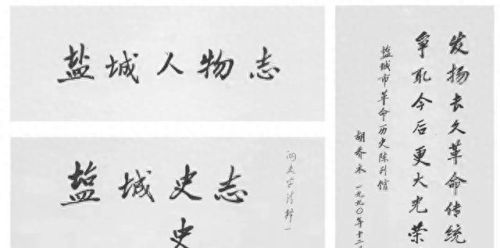 盐城人物志
盐城史志
史
两文字请择一
发扬长久革命传统
争取今后更大光荣
盐城市革命历史陈列馆
胡乔木 一九九〇年十二